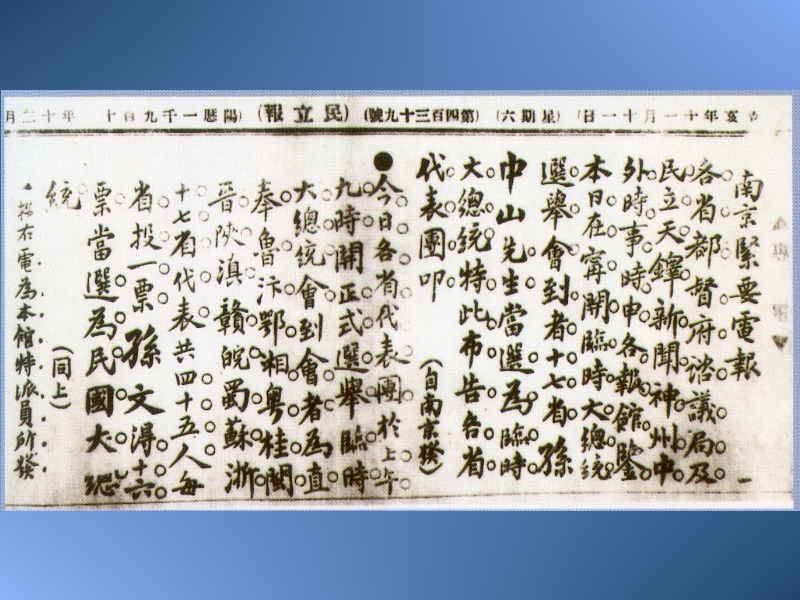 辛亥年十一月十一日 (星期六) (第四百三十九號) (民立報) (陽曆一千九百十 年十二月
南京緊要電報
各省都督府諮議局及
民立天鐸新聞神州中
外時事時申各報館鑒
本日在寗開臨時大總統
選舉會到者十七省孫
中山先生當選為臨時
大總統特此布告各省
代表團叩 (自南京發)
●今日各省代表團於上午
九時開正式選舉臨時
大總統會到會者為直
奉魯汴鄂湘粵桂閩
晉陝滇贛皖蜀蘇浙
十七省代表共四十五人每
省投一票孫文得十六
票當選為民國大總
統 (同上)
▲按右電為本館特派員所發